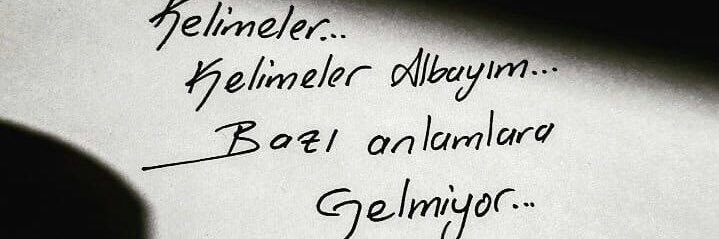 Kelimeler...
Kelimeler Albayım...
Bazı anlamlara
Gelmiyor...